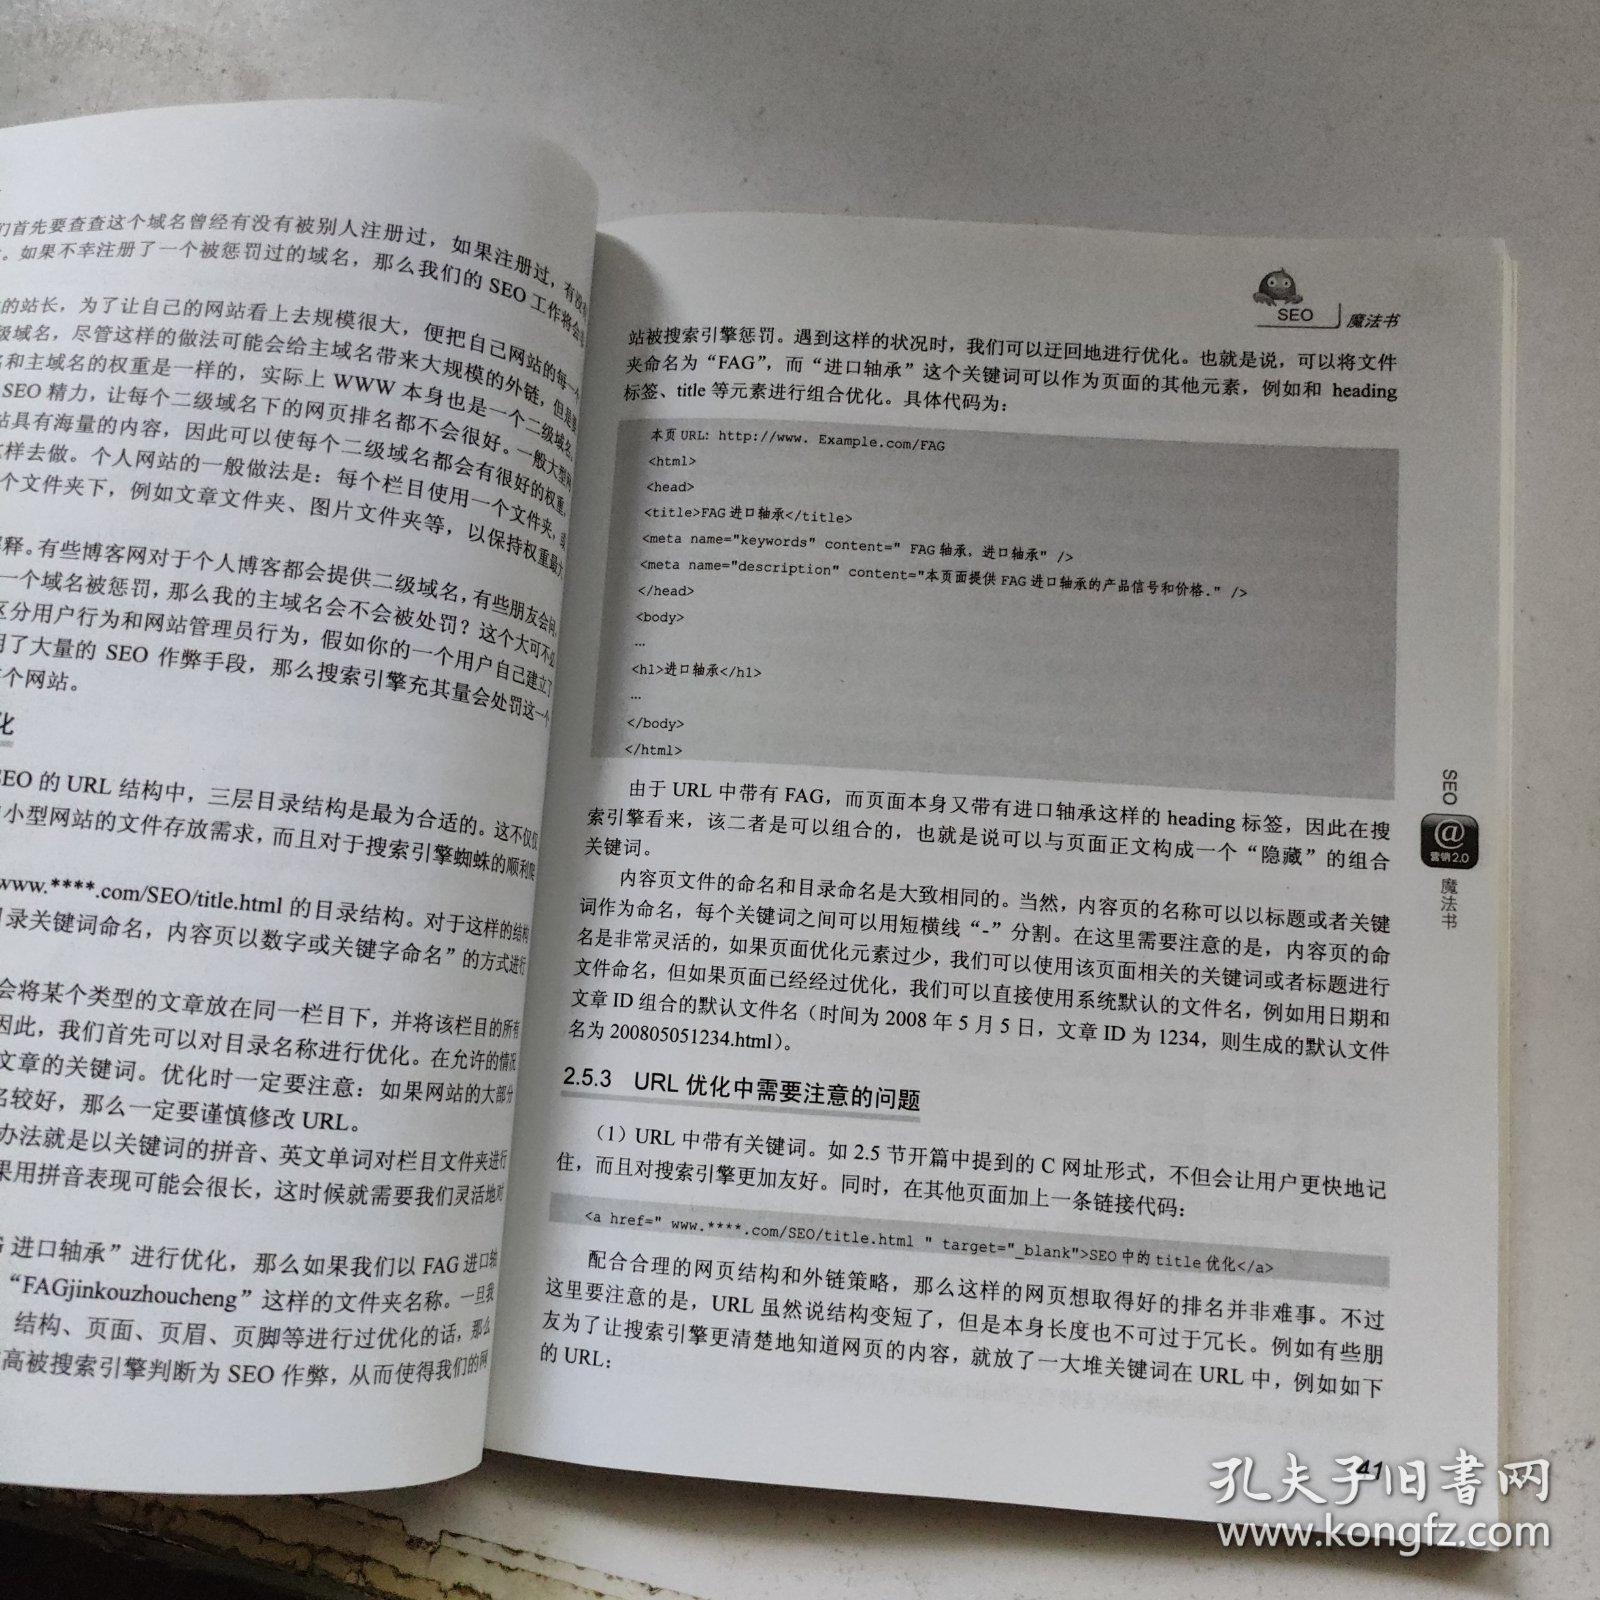 们首先要查查这个域名曾经有没有被别人注册过，如果注册过，有没有
。如果不幸注册了一个被惩罚过的域名，那么我们的 SEO 工作将会
的站长，为了让自己的网站看上去规模很大，便把自己网站的每一个
级域名，尽管这样的做法可能会给主域名带来大规模的外链，但是要
名和主域名的权重是一样的，实际上 WWW 本身也是一个二级域名。
SEO 精力，让每个二级域名下的网页排名都不会很好。一般大型网
站具有海量的内容，因此可以使每个二级域名都会有很好的权重，
这样去做。个人网站的一般做法是：每个栏目使用一个文件夹，或
个文件夹下，例如文章文件夹、图片文件夹等，以保持权重最大
解释。有些博客网对于个人博客都会提供二级域名，有些朋友会问，
一个域名被惩罚，那么我的主域名会不会被处罚？这个大可不必
区分用户行为和网站管理员行为，假如你的一个用户自己建立了
用了大量的 SEO 作弊手段，那么搜索引擎充其量会处罚这一个
个网站。
化
SEO 的 URL 结构中，三层目录结构是最为合适的。这不仅仅
小型网站的文件存放需求，而且对于搜索引擎蜘蛛的顺利爬
www.****.com/SEO/title.html 的目录结构。对于这样的结构
目录关键词命名，内容页以数字或关键字命名”的方式进行
会将某个类型的文章放在同一栏目下，并将该栏目的所有
因此，我们首先可以对目录名称进行优化。在允许的情况
文章的关键词。优化时一定要注意：如果网站的大部分
名较好，那么一定要谨慎修改 URL。
办法就是以关键词的拼音、英文单词对栏目文件夹进行
果用拼音表现可能会很长，这时候就需要我们灵活地对
G 进口轴承”进行优化，那么如果我们以 FAG 进口轴
“FAGjinkouzhoucheng”这样的文件夹名称。一旦我
结构、页面、页眉、页脚等进行过优化的话，那么
高被搜索引擎判断为 SEO 作弊，从而使得我们的网
SEO 魔法书
站被搜索引擎惩罚。遇到这样的状况时，我们可以迂回地进行优化。也就是说，可以将文件
夹命名为“FAG”，而“进口轴承”这个关键词可以作为页面的其他元素，例如和 heading
标签、title 等元素进行组合优化。具体代码为：
本页 URL: http://www. Example.com/FAG
<html>
<head>
<title>FAG 进口轴承</title>
<meta name="keywords" content=" FAG 轴承，进口轴承" />
<meta name="description" content="本页面提供 FAG 进口轴承的产品信号和价格." />
</head>
<body>
…
<h1>进口轴承</h1>
…
</body>
</html>
由于 URL 中带有 FAG，而页面本身又带有进口轴承这样的 heading 标签，因此在搜
索引擎看来，该二者是可以组合的，也就是说可以与页面正文构成一个“隐藏”的组合
关键词。
内容页文件的命名和目录命名是大致相同的。当然，内容页的名称可以以标题或者关键
词作为命名，每个关键词之间可以用短横线“-”分割。在这里需要注意的是，内容页的命
名是非常灵活的，如果页面优化元素过少，我们可以使用该页面相关的关键词或者标题进行
文件命名，但如果页面已经经过优化，我们可以直接使用系统默认的文件名，例如用日期和
文章 ID 组合的默认文件名（时间为 2008 年 5 月 5 日，文章 ID 为 1234，则生成的默认文件
名为 200805051234.html）。
2.5.3 URL 优化中需要注意的问题
（1）URL 中带有关键词。如 2.5 节开篇中提到的 C 网址形式，不但会让用户更快地记
住，而且对搜索引擎更加友好。同时，在其他页面加上一条链接代码：
<a href=" www.****.com/SEO/title.html " target="_blank">SEO 中的 title 优化</a>
配合合理的网页结构和外链策略，那么这样的网页想取得好的排名并非难事。不过
这里要注意的是，URL 虽然说结构变短了，但是本身长度也不可过于冗长。例如有些朋
友为了让搜索引擎更清楚地知道网页的内容，就放了一大堆关键词在 URL 中，例如如下
的 URL：
SEO
@
营销2.0
魔法书
41
孔夫子旧书网
www.kongfz.com